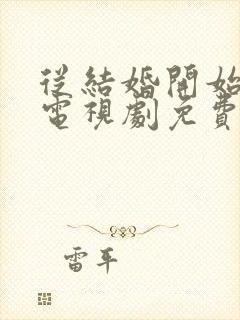 從結婚開始
電視劇免費
雷平